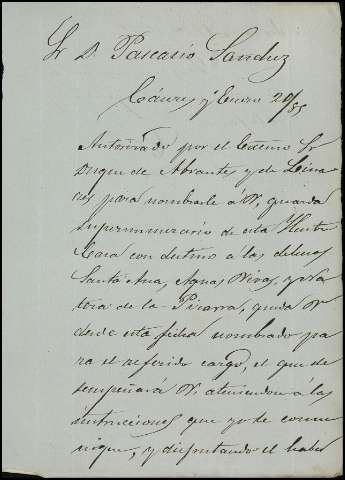 Sr D. Pascasio Sanchez
Cáceres y Enero 20/85
Autorizado por el Excmo Sr
Duque de Abrantes y de Lina-
res para nombrarle á V. guarda
supernumerario de esta Ilustre
Casa con destino á las dehesas
Santa Ana, Aguas Vivas, y
de la Pizarra, queda V
desde esta fecha nombrado pa
ra el referido cargo, el que de
sempeñará V. ateniendose á las
instrucciones que yo le comu
nique, y disfrutando el haber